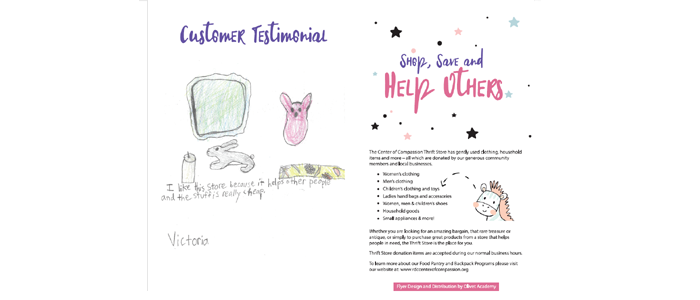 Customer Testimonial
I like this store because it helps other people
and the stuff is really cheap.
Victoria
Shop, Save and
Help Others
The Center of Compassion Thrift Store has gently used clothing, household
items and more – all which are donated by our generous community
members and local businesses.
• Women's clothing
• Men's clothing
• Children's clothing and toys
• Ladies hand bags and accessories
• Women, men & children's shoes
• Household goods
• Small appliances & more!
Whether you are looking for an amazing bargain, that rare treasure or
antique, or simply to purchase great products from a store that helps
people in need, the Thrift Store is the place for you.
Thrift Store donation items are accepted during our normal business hours.
To learn more about our Food Pantry and Backpack Programs please visit
our website at:
Flyer Design and Distribution by Oliver Academy